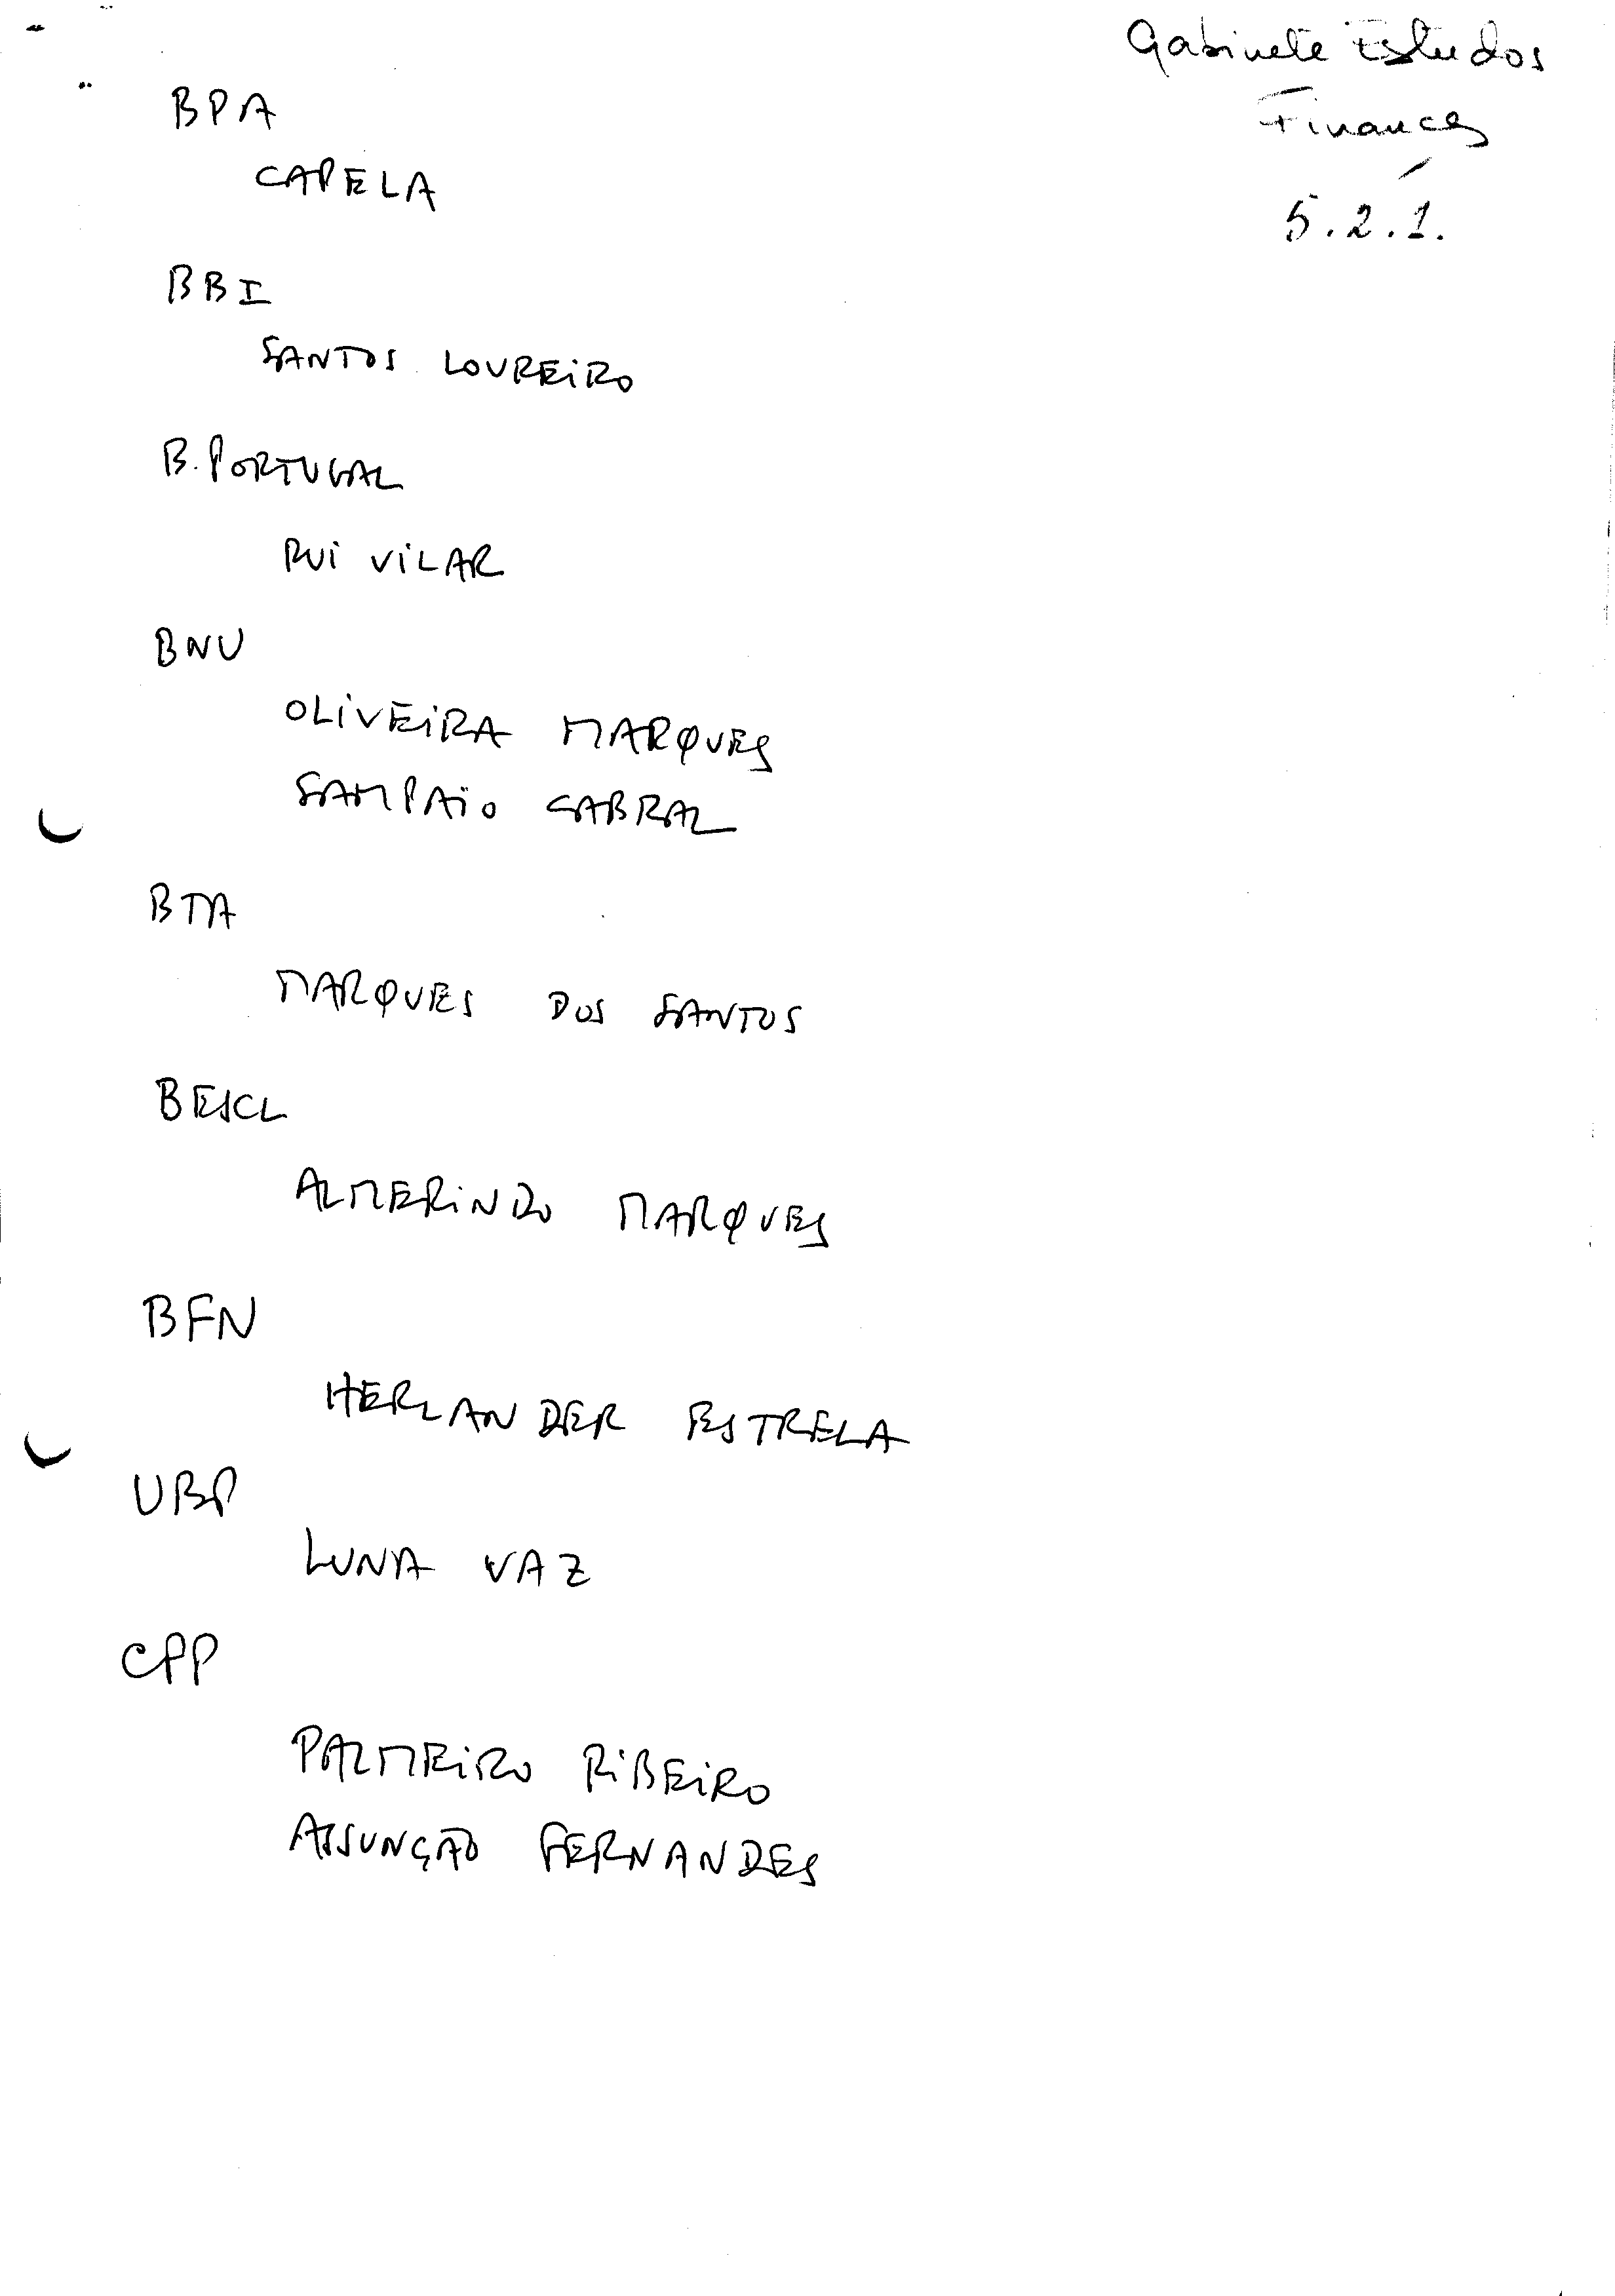 Gabinete Estudos
Finanças
5.2.1.
BPA
CAPELA
BBI
SANTOS LOUREIRO
B. PORTUGAL
RUI VILAR
BNU
OLIVEIRA MARQUES
SAMPAIO CABRAL
BTA
MARQUES DOS SANTOS
BESCL
ALMERINDO MARQUES
BFN
HERLANDER ESTRELA
UBP
LUNA VAZ
CPP
PALMEIRO RIBEIRO
ASSUNÇÃO FERNANDES